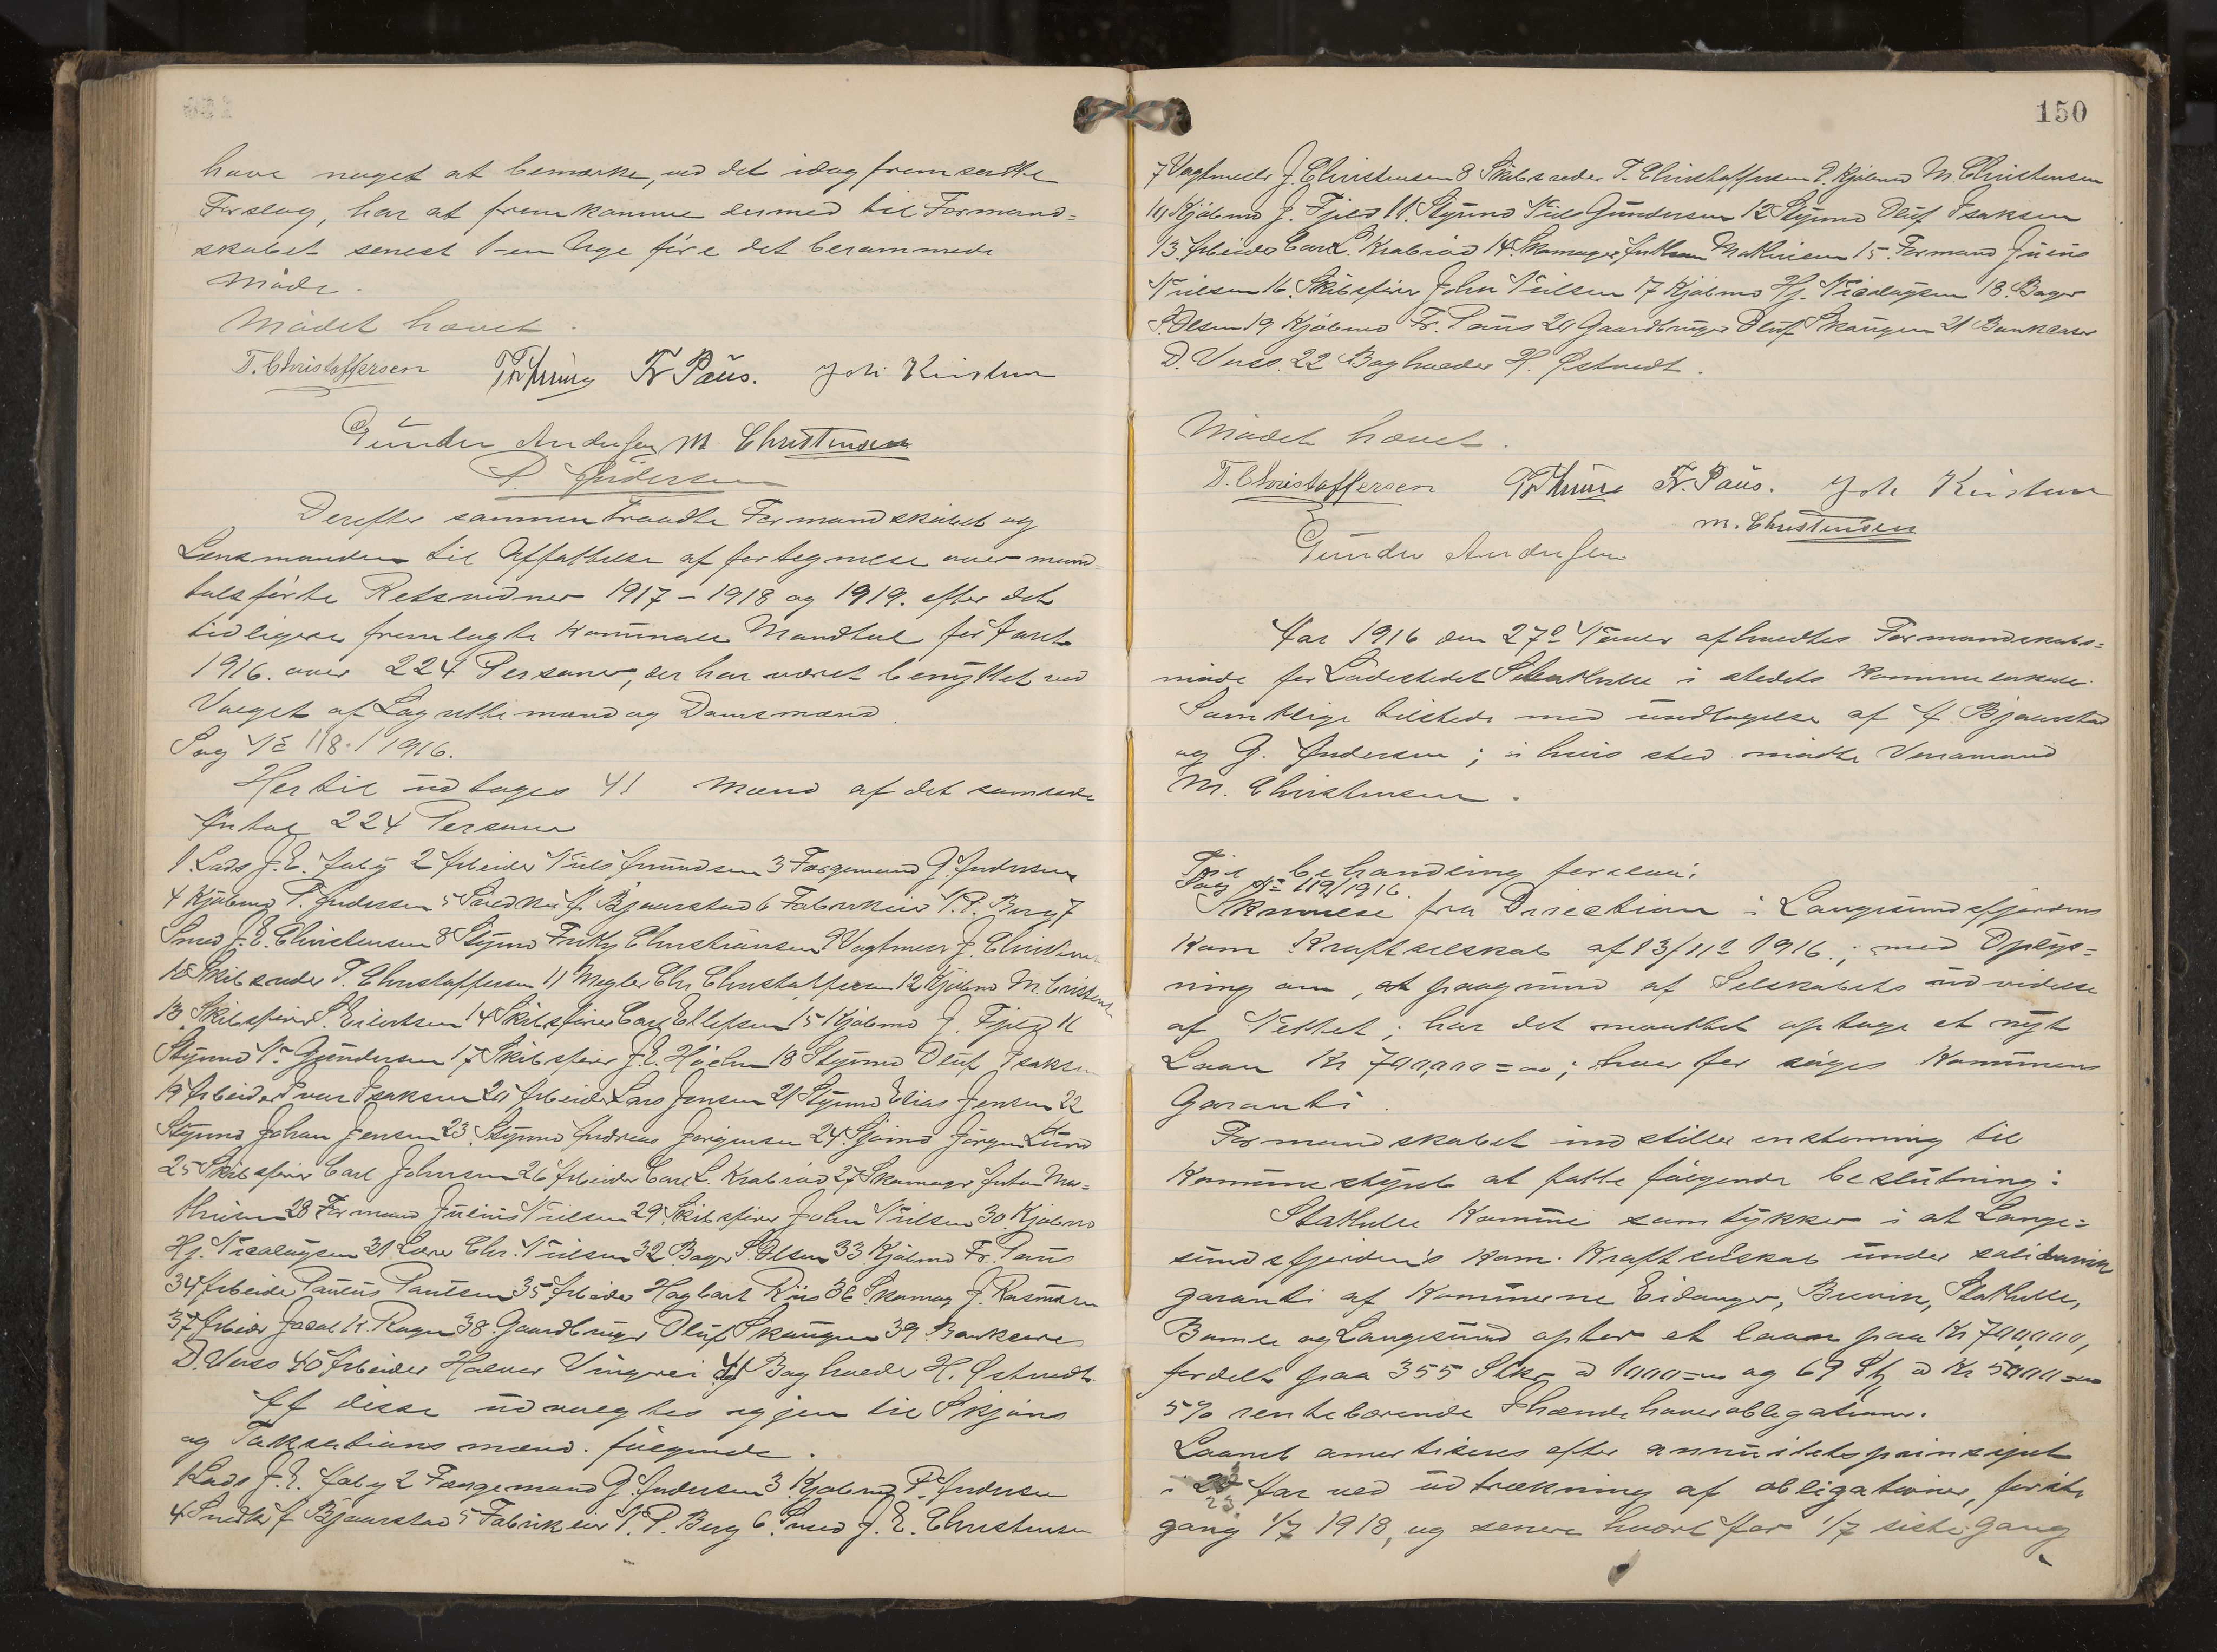 have noget at bemærke, ved det idag fremsatte
Forslag, har at fremkomme dermed til Formand=
skabet senest 1-en Uge före det berammede
Möde.
Mödet hævet.
T. Christoffersen Fr Paus.
Gunder Andersen M. Christensen
P. Andersen
Derefter sammentraadte Formandskabet og
Lensmanden til Affattelse af fortegnelse over mand=
talsförte Retsvidner 1917 - 1918 og 1919. efter det
tidligere fremlagte Kommunale Mandtal for Aaret
1916. over 224 Personer, der har været benyttet ved
Valget af Lagrettemænd og Domsmænd.
Sag No 118./1916.
Hertil udtages 41 Mænd af det samlede
Antal 224 Personer
1. Lods J. E. Aaby 2 Arbeider Nils Amundsen 3 Færgemand G. Andersen
4 Kjöbmd P. Andersen 5 Snedker A. Bjaarstad 6 Fabrikeier N. P. Berg 7
Smed J. E. Christensen 8 Stÿrmd Christiansen 9 Vagtmester J. Christensen
10 Skibsreder T. Christoffersen 11 Megler Chr Christoffersen 12 Kjöbmd M. Cristensen
13. Skibsförer S. Eilertsen 14 Skibsförer Carl Ellefsen 15 Kjöbmd J. Fjeld 16
Stÿrmd N. Gundersen 17 Skibsförer J. E. 18 Stÿrmd Oluf Isaksen
19 Arbeider Ivar Isaksen 20 Arbeider Lars Jensen 21 Stÿrmd Elias Jensen 22
Stÿrmd Johan Jensen 23. Stÿrmd Andreas Jörgensen 24. Sjömd Jörgen Lund
25 Skibsförer Carl Johnsen 26 Arbeider Carl L. Krabröd 27 Skomager Anton Ma=
thisen 28 Formand Julius Nielsen 29. Skibsförer John Nielsen 30 Kjöbmd
Hj. Nicolaysen 31 Lærer Chr. Nielsen 32. Bager S. Olsen 33. Kjöbmd Fr. Paus
34 Arbeider Paulus Paulsen 35 Arbeider Hagbart Riis 36 Skomag J. Rasmusen
37 Arbeider K. 38. Gaardbruger Oluf Skaugen 39. Bankkaserer
D. Vass 40 Arbeider Halvor 41 Bagholder H. Östvedt.
Af disse udvælgtes igjen til Skjöns
og Taksationsmænd. fölgende.
1 Lods J. E. Aaby 2 Færgemand G. Andersen 3 Kjöbmd P. Andersen
4 Snedker A Bjaarstad 5 Fabrikeier N. P. Berg 6. Smed J. E. Christensen
150
7 Vagtmester J. Christensen 8 Skibsreder T. Christoffersen 9. Kjöbmd M. Christensen
10 Kjöbmd J. Fjeld 11. Stÿrmd Nils Gundersen 12 Stÿrmd Oluf Isaksen
13. Arbeider Carl L. Krabröd 14. Skomager Anthon Mathisen 15. Formand Julius
Nielsen 16. Skibsförer John Nielsen 17 Kjöbmd Hj. Nicolaysen 18. Bager
S. Olsen 19 Kjöbmd Fr. Paus 20 Gaardbruger Oluf Skaugen 21 Bankkaser
D. Vass. 22 Bagholder H. Östvedt.
Mödet hævet.
T. Christoffersen Fr. Paus.
M. Christensen
Gunder Andersen
Aar 1916 den 27de Novbr afholdtes Formandskabs=
möde for Ladestedet Stathelle i stedets Kommunelokale.
Samtlige tilstede med undtagelse af A. Bjaarstad
og G. Andersen; i hvis sted mödte Varamand
M. Christensen.
Til behandling forelaa:
Sag No 119/1916.
Skrivelse fra Direction i Langesundsfjordens
Kom Kraftselskab af 23/11de 1916.; med Oplys=
ning om, at paagrund af Selskabets udvidelse
af Nettet; har det maattet optage et nÿt
Laan Kr 700,000=oo; hvorfor söges Kommunens
Garanti.
Formandskabet indstiller enstemig til
Kommunestyret at fatte fölgende beslutning:
Stathelle Kommune samtykker i at Lange=
sundsfjorden's kom. Kraftselskab under solidarisk
garanti af Kommunerne Eidanger, Brevik, Stathelle,
Bamle og Langesund optar et laan paa Kr 700,000,
fordelt paa 355 Stkr à 1000=oo og 69 St à Kr 5000=oo
5% rentebærende Ihændehaverobligationer.
Laanet amortiseres efter annuitetsprinsipet
i 23 Aar ved udtrækning af obligationer, förste
gang 1/7 1918, og senere hvert Aar 1/7 siste Gang